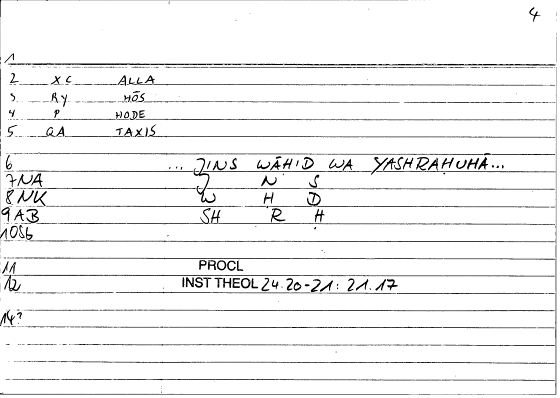 4
1
2 XC ALLA
3 RY HŌS
4 P HODE
5 QA TAXIS
6 ... JINS WĀḤID WA YASHRAḤUHĀ...
7 NA J N S
8 NK W Ḥ D
9 AB SH R Ḥ
10 SB
11 PROCL
12 INST THEOL 24.20-21: 21.17
14?